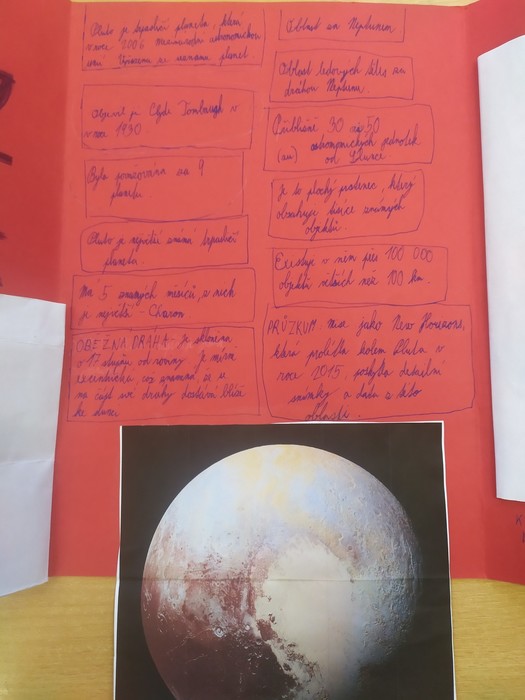 Pluto je trpasličí planeta, která
v roce 2006 mezinárodní astronomickou
unií
Objevil je Clyde Tombaugh v
v roce 1930.
Byla považována za 9
planetu
Pluto je největší známá trpasličí
planeta.
Má 5 známých měsíců, z nich
je největší - Charon
OBĚŽNÁ DRÁHA je skloněna
o 17 stupňů od roviny je mírně
excentrická, což znamená, že se
na části své dráhy dostává blíže
ke slunci
Oblast za Neptunem
Oblast ledových těles za
dráhou Neptunu.
Přibližně 30 až 50
(au) astronomických jednotek
od Slunce
Je to plochý prstenec, který
obsahuje tisíce známých
objektů.
Existuje v něm přes 100 000
objektů větších než 100 km.
PRŮZKUM mise jako New Horizons,
která proletěla kolem Pluta v
roce 2015, poskytla detailní
snímky a data z této
oblasti.